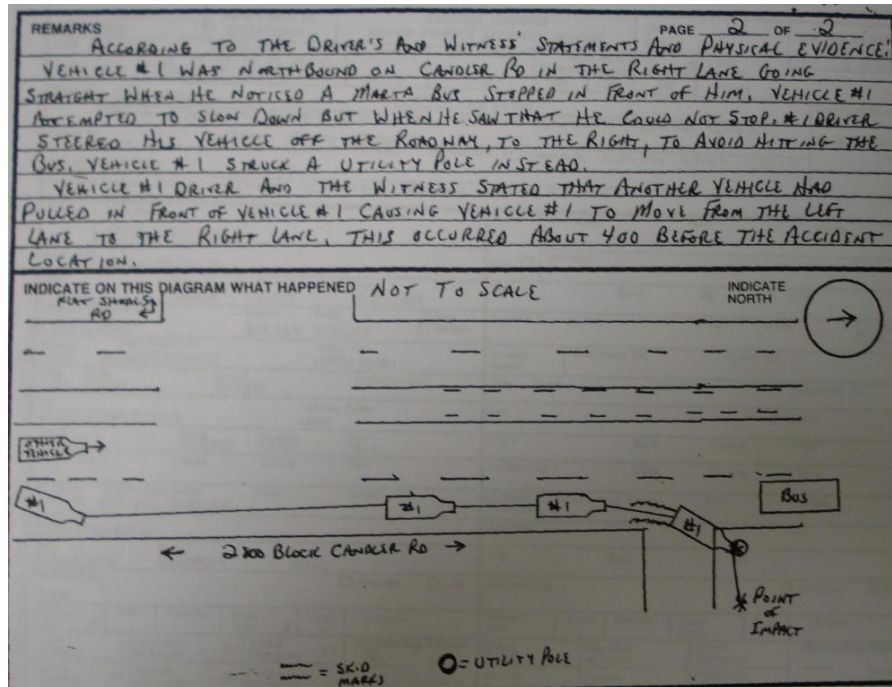 REMARKS
PAGE 2 OF 2
ACCORDING TO THE DRIVER'S AND WITNESS' STATEMENTS AND PHYSICAL EVIDENCE:
VEHICLE #1 WAS NORTHBOUND ON CANDLER RD IN THE RIGHT LANE GOING
STRAIGHT WHEN HE NOTICED A MARTA BUS STOPPED IN FRONT OF HIM. VEHICLE #1
ATTEMPTED TO SLOW DOWN BUT WHEN HE SAW THAT HE COULD NOT STOP, #1 DRIVER
STEERED HIS VEHICLE OFF THE ROADWAY, TO THE RIGHT, TO AVOID HITTING THE
BUS. VEHICLE #1 STRUCK A UTILITY POLE INSTEAD.
VEHICLE #1 DRIVER AND THE WITNESS STATED THAT ANOTHER VEHICLE HAD
PULLED IN FRONT OF VEHICLE #1 CAUSING VEHICLE #1 TO MOVE FROM THE LEFT
LANE TO THE RIGHT LANE. THIS OCCURRED ABOUT 400 BEFORE THE ACCIDENT
LOCATION.
INDICATE ON THIS DIAGRAM WHAT HAPPENED
NOT TO SCALE
INDICATE
NORTH
FLAT SHOALS
RD
OTHER
VEHICLE
#1
#1
#1
#1
BUS
2800 BLOCK CANDLER RD
POINT
OF
IMPACT
= SKID
MARKS
= UTILITY POLE